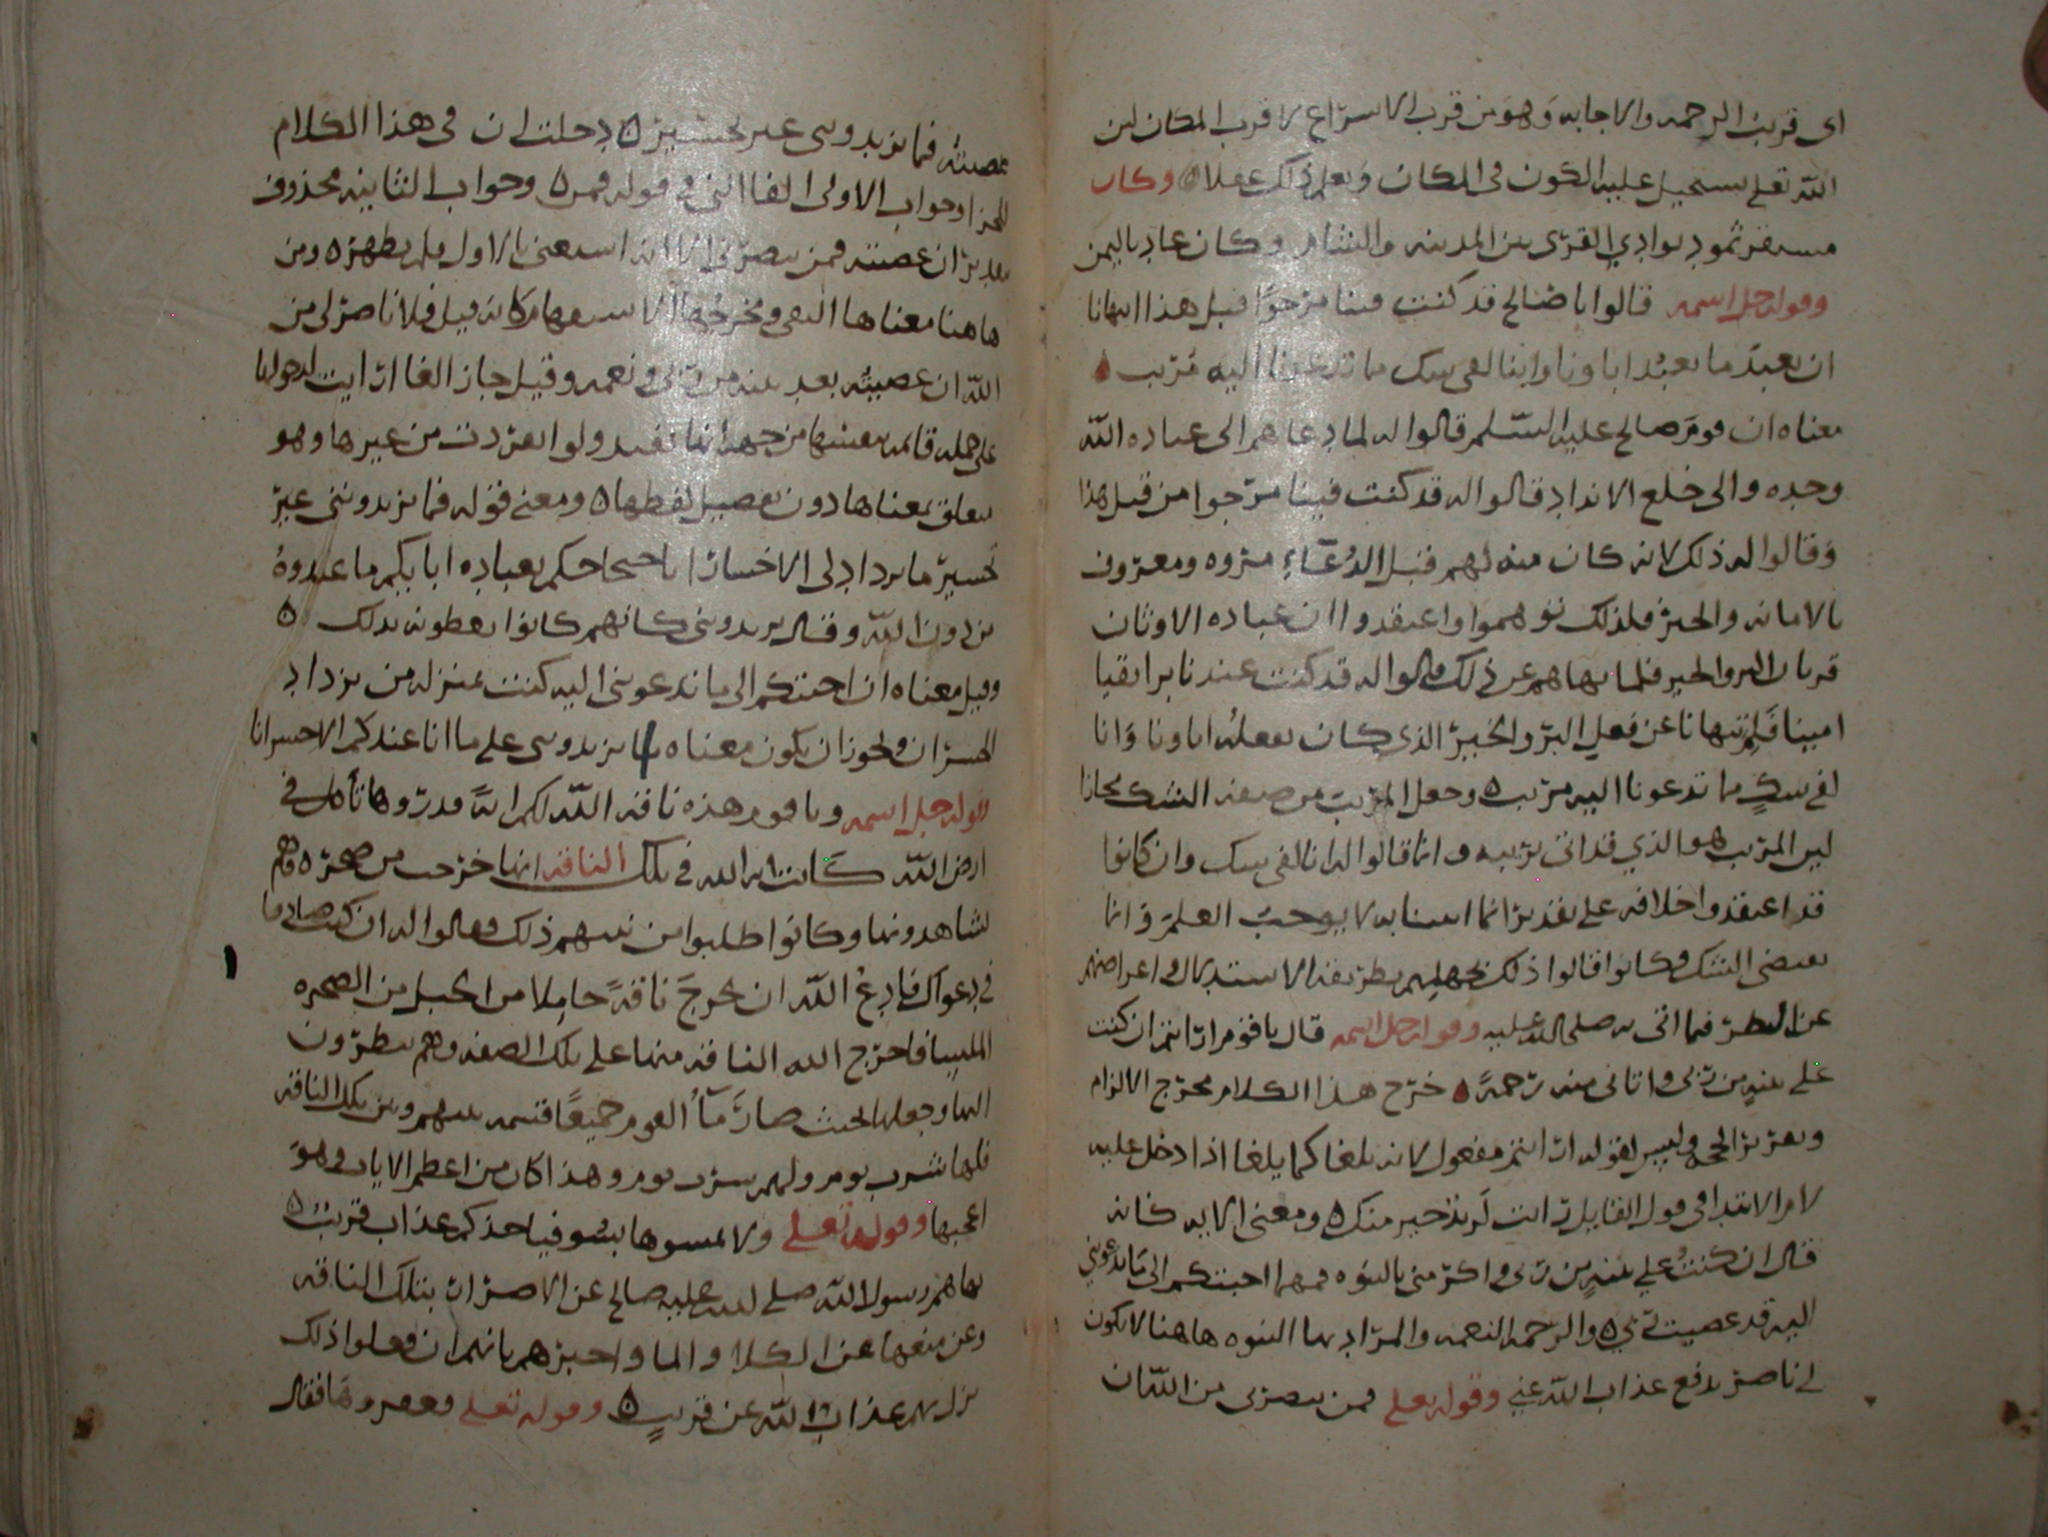 اى قريب الرحمه والاجابه وهو من قرب الاسراع لا قرب المكان لان
الله تعلى يستحيل عليه الكون فى المكان ويعلم ذلك عقلا ه وكان
مستقر ثمود بوادي القرى بين المدينه والشام وكان عاد باليمن
وقوله جل اسمه قالوا يا صالح قد كنت فينا مرجوا قبل هذا اتنهانا
ان نعبد ما يعبد اباونا واننا لفى شك مما تدعونا اليه مريب ه
معناه ان قوم صالح عليه السلم قالوا له لما دعاهم الى عباده الله
وحده والى خلع الانداد قالوا له قد كنت فينا مرجوا من قبل هذا
وقالوا له ذلك لانه كان منه لهم قبل الدعاء مروه ومعروف
بالامانه والخير فلذلك توهموا واعتقدوا ان عباده الاوثان
قربان البر والخير فلما نهاهم عن ذلك قالوا له قد كنت عندنا برا تقيا
امينا فلم تنهانا عن فعل البر والخير الذي كان يفعله اباونا وانا
لفي شك مما تدعونا اليه مريب ه وجعل المريب من صفه الشك مجازا
لان المريب هو الذي قد اتى بريبه وانما قالوا له انا لفى شك وان كانوا
قد اعتقدوا خلافه على تقدير انما اتينا به لا يوجب العلم وانما
يقتضى الشك وكانوا قالوا ذلك لجهلهم بطريقه الاستدلال واعراضهم
عن النظر فيما اتى به صلى الله عليه وقوله جل اسمه قال يا قوم ارايتم ان كنت
على بينه من ربى واتانى منه رحمة ه خرج هذا الكلام مخرج الالزام
وتقرير الحجه وليس لقوله ارايتم مفعول لانه يلغا كما يلغا اذا دخل عليه
لام الابتدا فى قول القايل رايت لزيد خير منك ه ومعنى الايه كانه
قال ان كنت على بينه من ربى واكرمنى بالنبوه فمهما اجبتكم الى ما تدعوني
اليه قد عصيت ربي ه والرحمه النعمه والمراد بها النبوه هاهنا لا يكون
لي ناصر يدفع عذاب الله عني وقوله تعلى فمن ينصرنى من الله ان
عصيته فما تزيدوننى غير تخسير ه دخلت ان فى هذا الكلام
للجزا وجواب الاولى الفا التى فى قوله فمن ه وجواب الثانيه محذوف
تقديره ان عصيته فمن ينصرنى الا انه استغنى بالاول فلم يظهره ومن
هاهنا معناها النفى ومخرجها الاستفهام كانه قيل فلا ناصر لى من
الله ان عصيته بعد بينه من ربى ونعمه وقيل جاز الغا ارايت لدخولها
على جمله قائمه بنفسها من جهه انها تفيد ولو انفردت من غيرها وهو
يتعلق بمعناها دون تفصيل لفظها ه ومعنى قوله فما تزيدوننى غير
تخسير ما يزداد لى الا خسارا باحتجاجكم بعباده ابايكم ما عبدوه
من دون الله وقال يزيدوننى كانهم كانوا يعطونه بذلك ه
وقيل معناه ان اجبتكم الى ما تدعونى اليه كنت بمنزله من يزداد
الخسران ويجوز ان يكون معناه ما تزيدوننى على ما انا عندكم الا خسرانا
قوله جل اسمه ويا قوم هذه ناقه الله لكم اية فذروها تأكل في
ارض الله كانت ايه الله في تلك الناقه انها خرجت من صخره وهم
يشاهدونها وكانوا طلبوا من نبيهم ذلك وقالوا له ان كنت صادقا
في دعواك فادع الله ان يخرج ناقة حاملا من الجبل من الصخره
الملسا فاخرج الله الناقه منها على تلك الصفه وهم ينظرون
اليها وجعلها بحيث صار مآ القوم جميعا قسمه بينهم وبين تلك الناقه
فلها شرب يوم ولهم شرب يوم وهذا كان من اعظم الايات وهو
اعجبها وقوله تعلى ولا تمسوها بسو فياخذكم عذاب قريب ه
نهاهم رسول الله صلى الله عليه صالح عن الاضرار بتلك الناقه
وعن منعها عن الكلا والما واخبرهم بانهم ان فعلوا ذلك
نزل بهم عذاب الله عن قريب ه وقوله تعلى فعقروها فقال